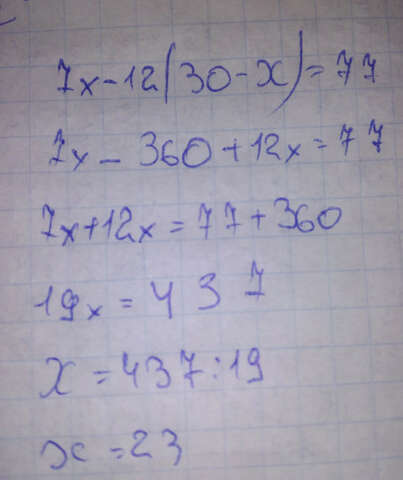 7x-12(30-x)=77
7x-360+12x=77
7x+12x=77+360
19x=437
x=437:19
x=23